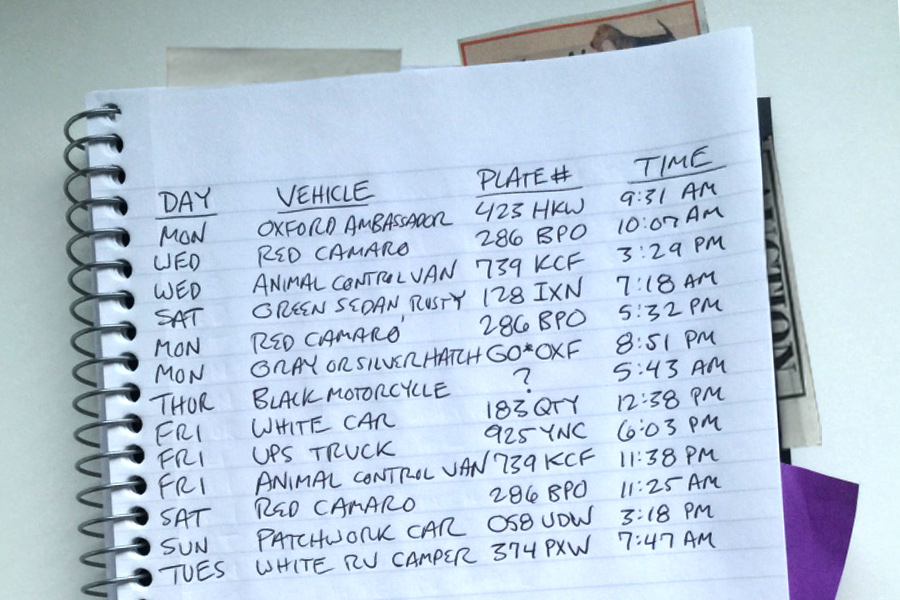 DAY VEHICLE PLATE# TIME
MON OXFORD AMBASSADOR 423 HKW 9:31 AM
WED RED CAMARO 286 BPO 10:07 AM
WED ANIMAL CONTROL VAN 739 KCF 3:29 PM
SAT GREEN SEDAN, RUSTY 128 IXN 7:18 AM
MON RED CAMARO 286 BPO 5:32 PM
MON GRAY OR SILVER HATCH GO*OXF 8:51 PM
THUR BLACK MOTORCYCLE ? 5:43 AM
FRI WHITE CAR 183 QTY 12:38 PM
FRI UPS TRUCK 925 YNC 6:03 PM
FRI ANIMAL CONTROL VAN 739 KCF 11:38 PM
SAT RED CAMARO 286 BPO 11:25 AM
SUN PATCHWORK CAR 058 UDW 3:18 PM
TUES WHITE RV CAMPER 374 PXW 7:47 AM